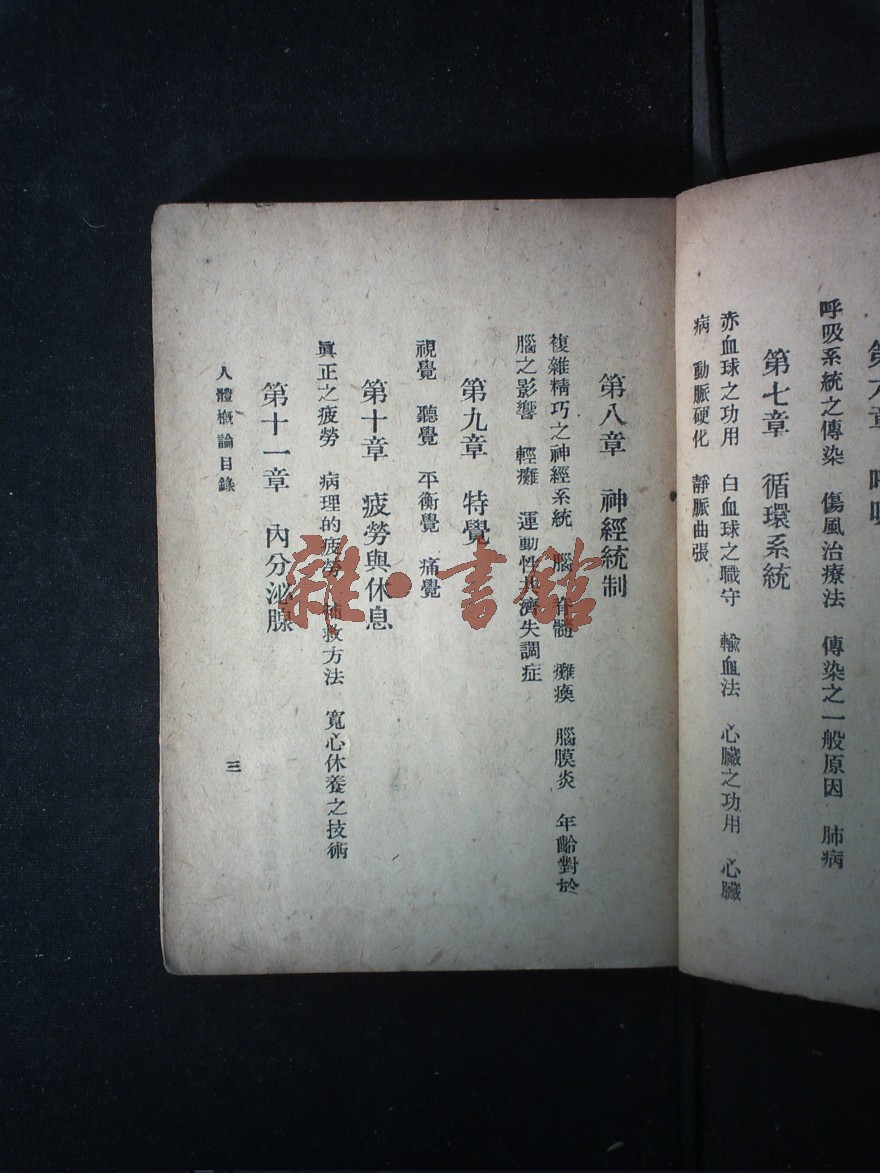 第六章
呼吸系統之傳染　傷風治療法　傳染之一般原因　肺病
第七章　循環系統
赤血球之功用　白血球之職守　輸血法　心臟之功用　心臟
病　動脈硬化　靜脈曲張
第八章　神經統制
複雜精巧之神經系統　腦　脊髓　癱瘓　腦膜炎　年齡對於
腦之影響　輕癱　運動性共濟失調症
第九章　特覺
視覺　聽覺　平衡覺　痛覺
第十章　疲勞與休息
眞正之疲勞　病理的疲勞　補救方法　寬心休養之技術
第十一章　內分泌腺
人體概論目錄
三
雜·書館